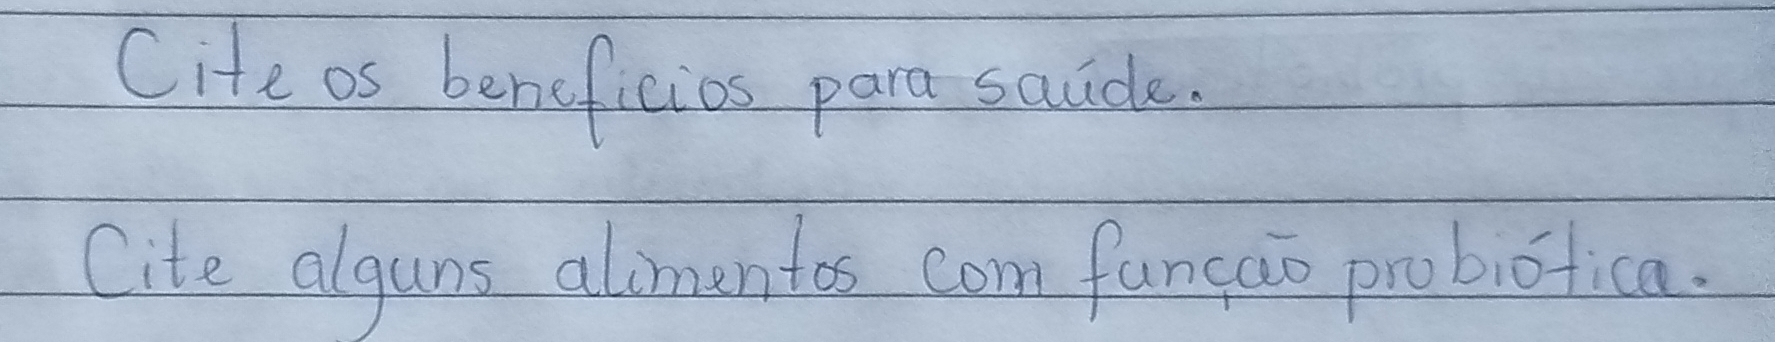 Cite os beneficios para saúde.
Cite alguns alimentos com função probiótica.